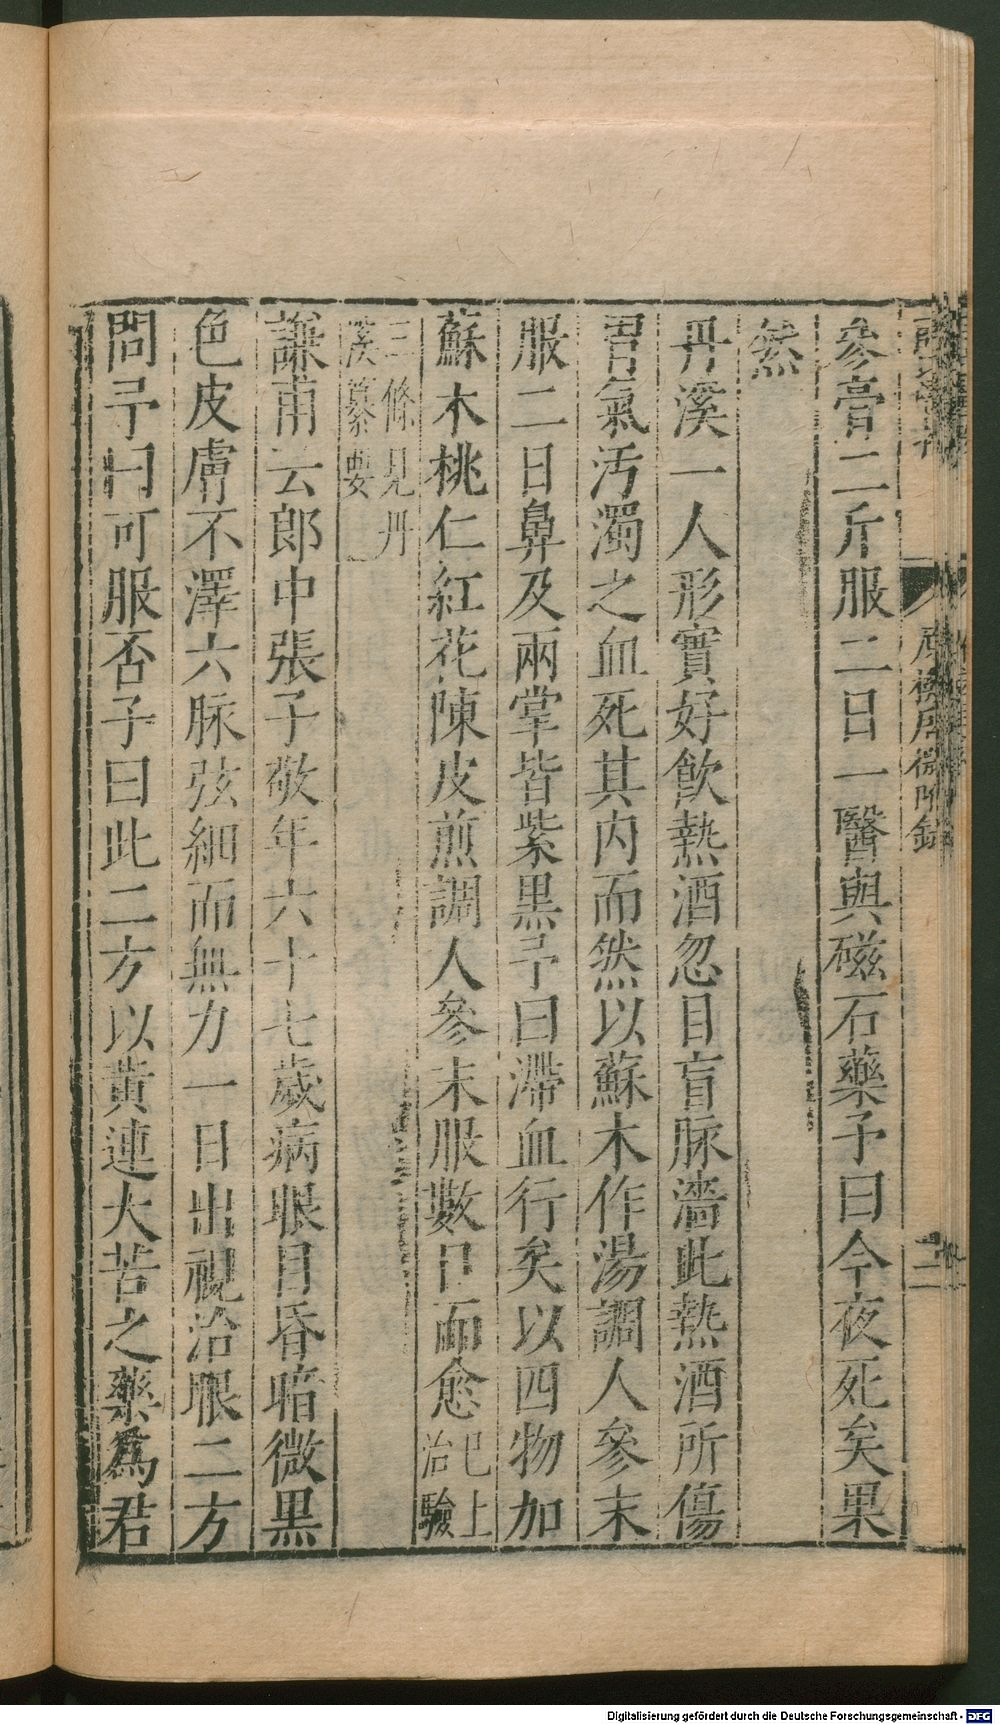 參膏二斤服二日一醫與磁石藥予曰今夜死矣果
然
丹溪一人形實好飲熱酒忽目盲脉濇此熱酒所傷
胃氣汚濁之血死其内而然以蘇木作湯調人參末
服二日鼻及兩掌皆紫黒予曰滯血行矣以四物加
蘇木桃仁紅花陳皮煎調人參末服數日而愈已上治驗
三條見丹
溪纂要
謙甫云郎中張子敬年六十七歲病眼目昏暗微黒
色皮膚不澤六脉弦細而無力一日出視治眼二方
問予曰可服否予曰此二方以黄連大苦之藥爲君
Digitalisierung gefördert durch die Deutsche Forschungsgemeinschaft - DFG